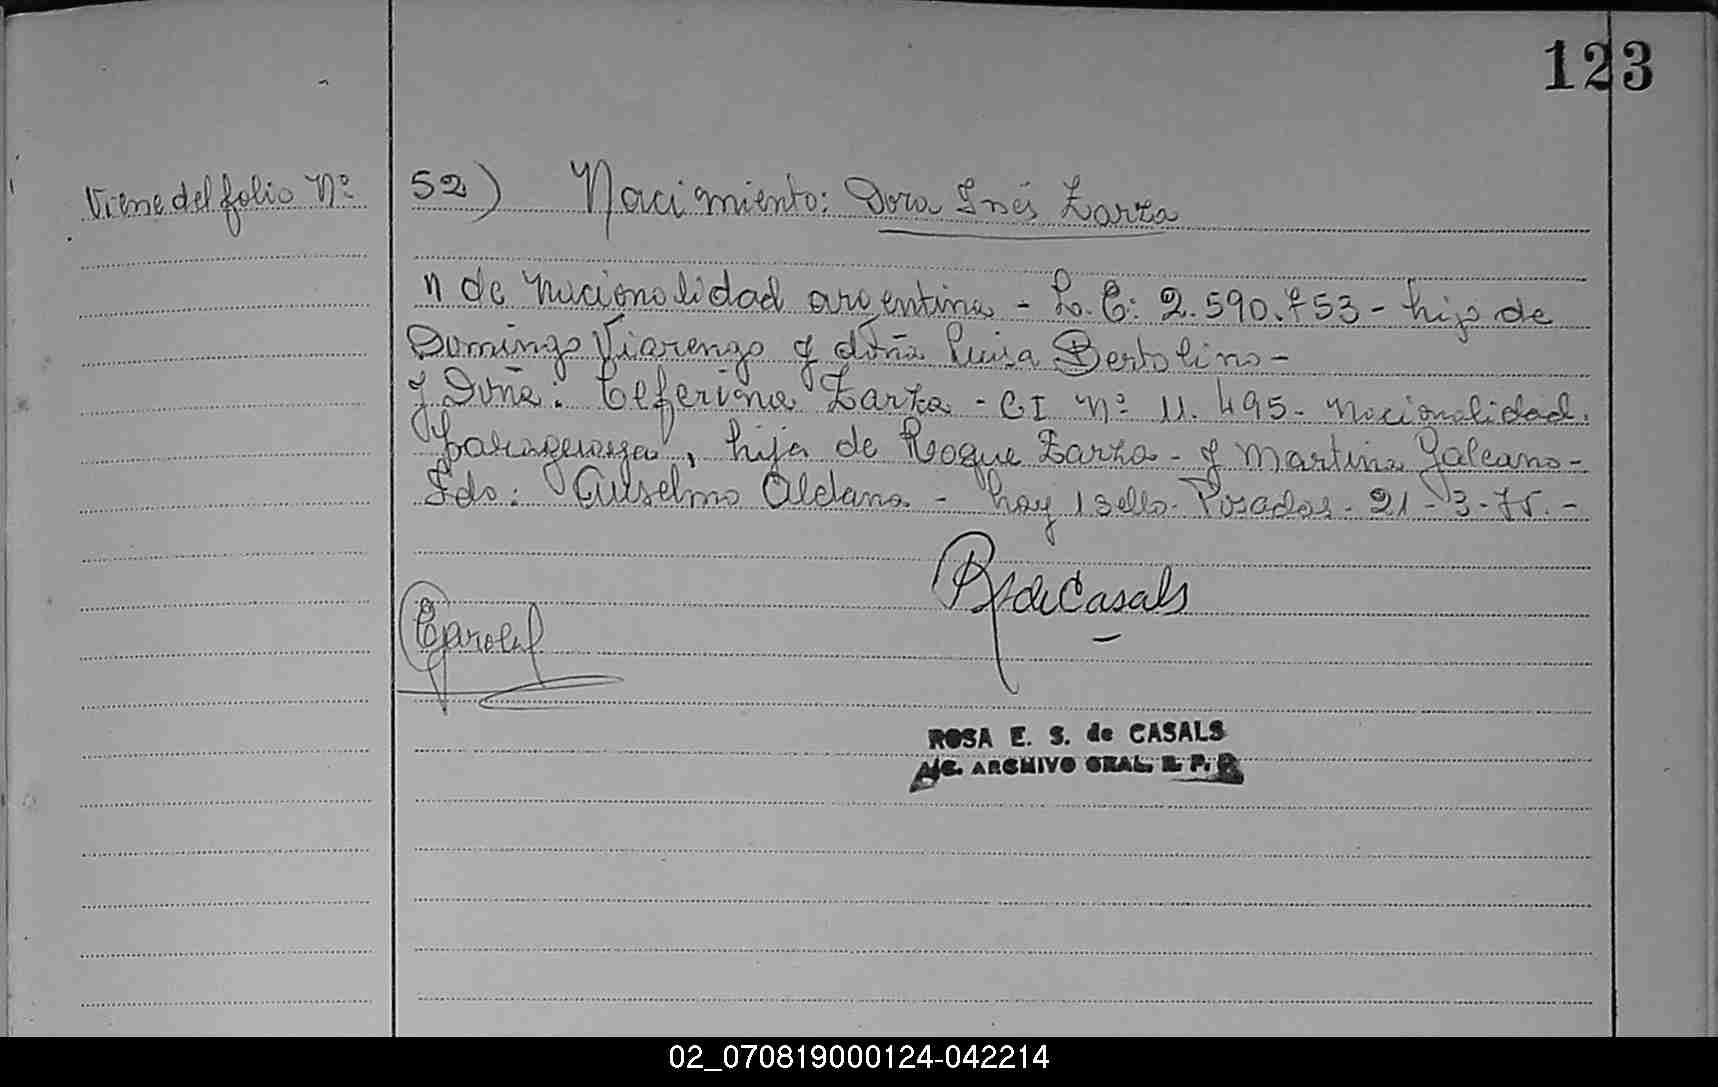 123
Viene del folio Nº 52) Nacimiento: Dora Inés Zarza
n de nacionalidad argentina - L. C: 2.590.753 - hijo de
Domingo Viarengo y doña Luisa Bertolino -
y Doña: Ceferina Zarza - CI Nº 11.495 - nacionalidad
paraguaya, hija de Roque Zarza - y Martina Galeano -
Fdo: Anselmo Aldana - hay 1 sello - Posadas - 21 - 3 - 75. -
R S de Casals
ROSA E. S. de CASALS
A/C. ARCHIVO GRAL. R. P.
02_070819000124-042214